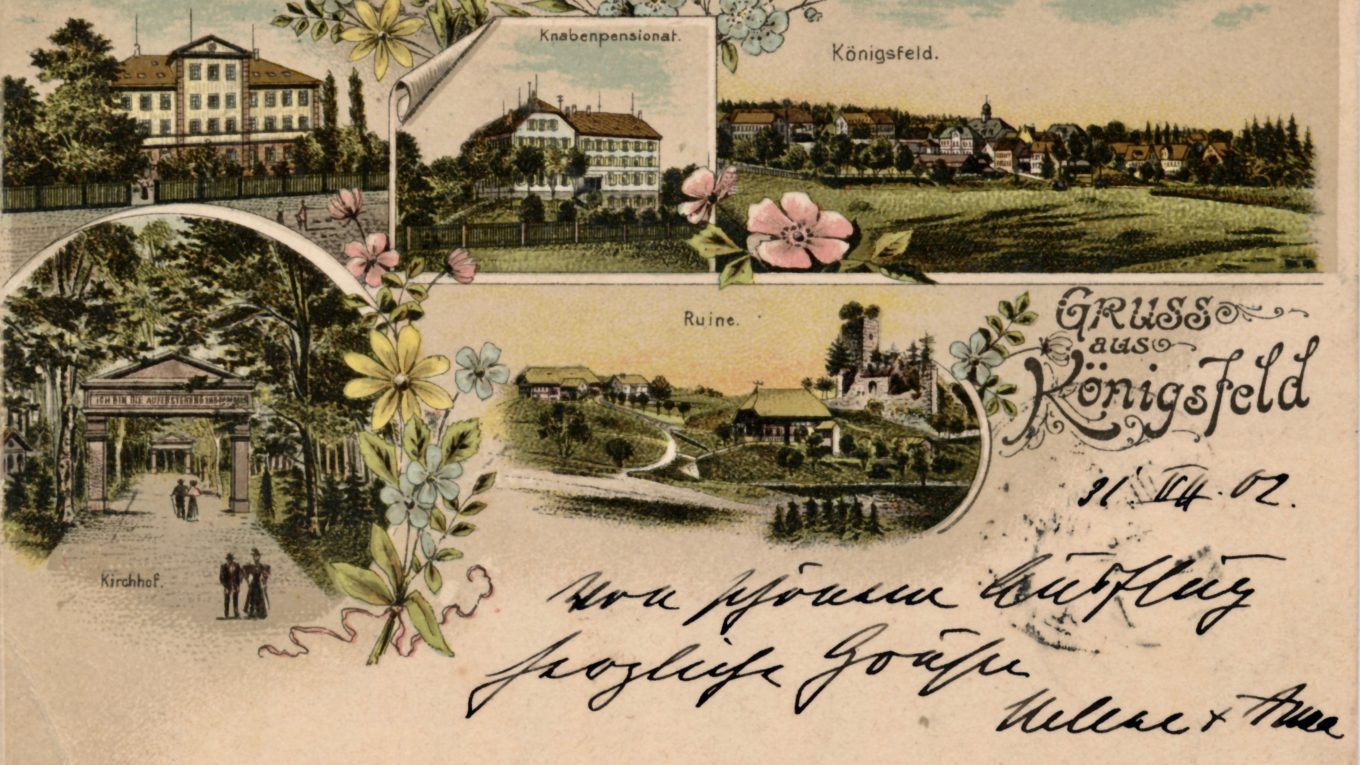 Knabenpensionat.
Königsfeld.
Ruine.
GRUSS
aus
Königsfeld
ICH BIN DIE AUFERSTEHUNG UND
Kirchhof.
31. VII. 02.
Von schönem Ausflug
herzliche Grüße
Helene + Anna